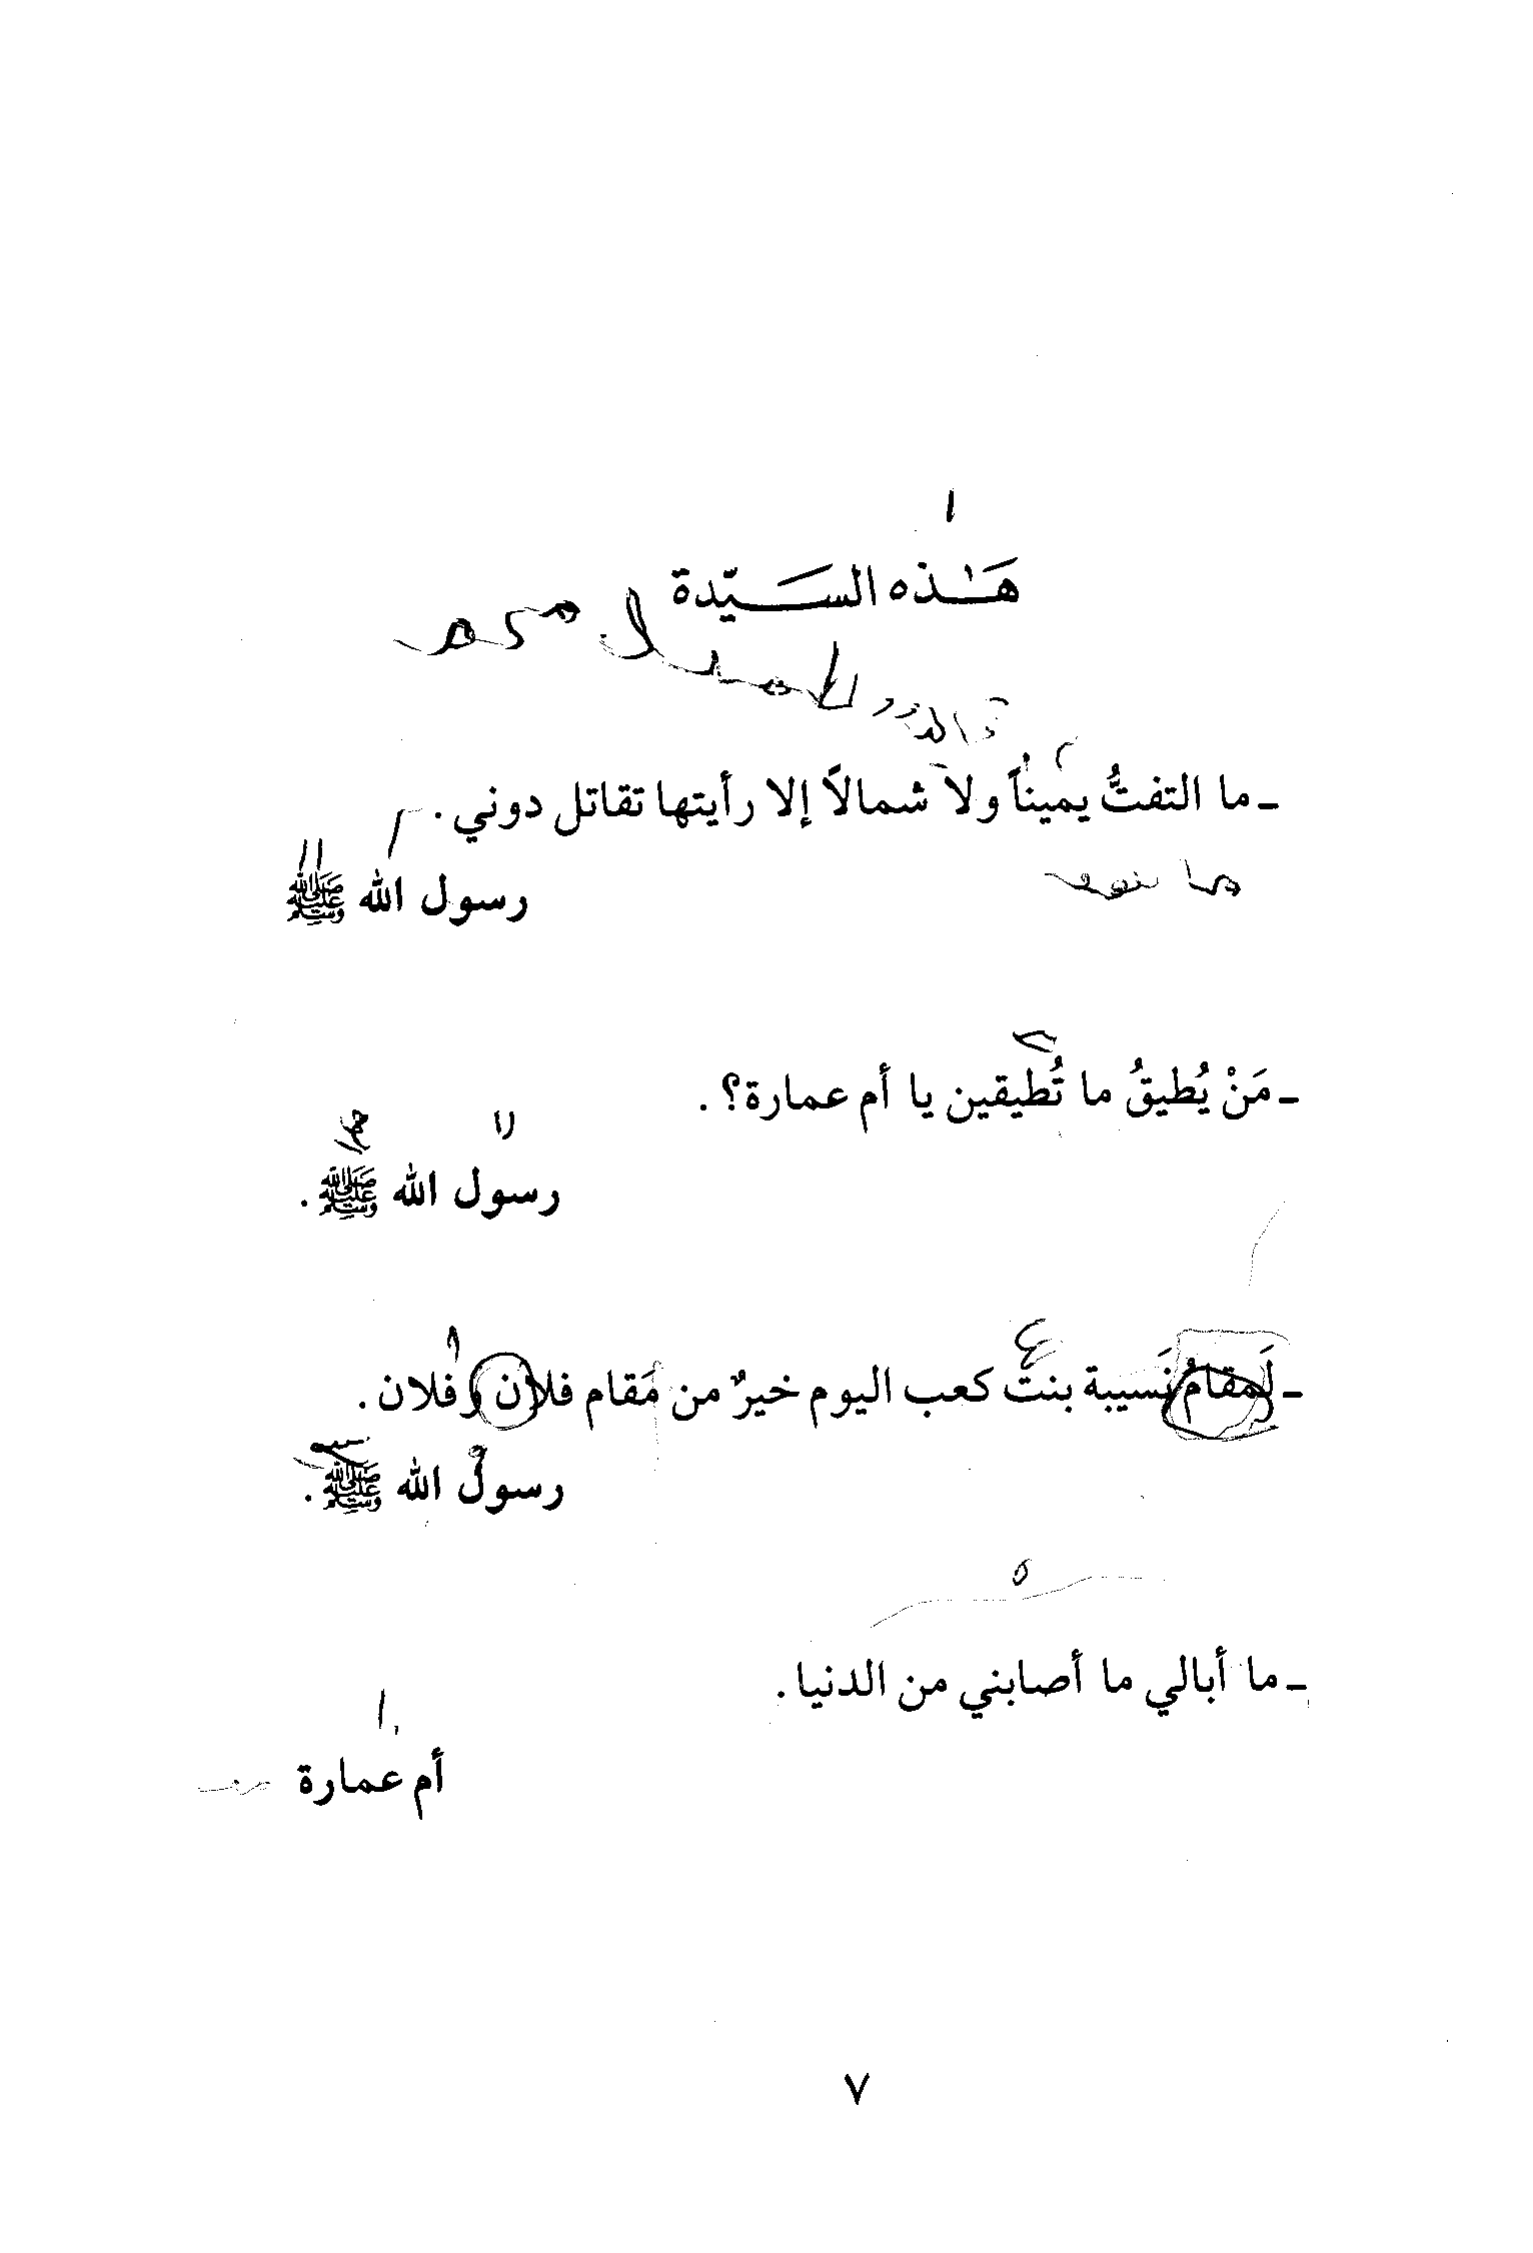 هَٰذه السَيّدة
ـ ما التفتُّ يميناً ولا شمالاً إلا رأيتها تقاتل دوني.
رسول الله ﷺ
ـ مَنْ يُطيقُ ما تُطيقين يا أم عمارة؟.
رسول الله ﷺ.
ـ لَمقامُ نَسيبة بنت كعب اليوم خيرٌ من مَقام فلان وفلان.
رسول الله ﷺ.
ـ ما أبالي ما أصابني من الدنيا.
أم عمارة
٧